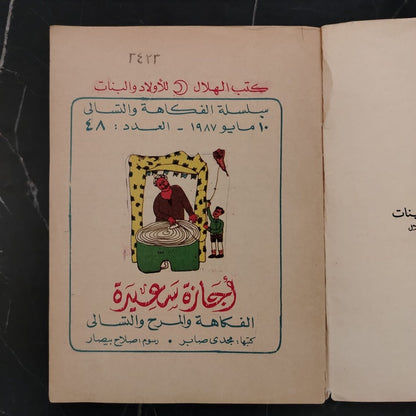 ٢٤٢٣
كتب الهلال للأولاد والبنات
سلسلة الفكاهة والتسالى
١٠ مايو ١٩٨٧ - العدد: ٤٨
أجازة سعيدة
الفكاهة والمرح والتسالى
كتبها: مجدى صابر • رسوم: صلاح بيصار
بنات